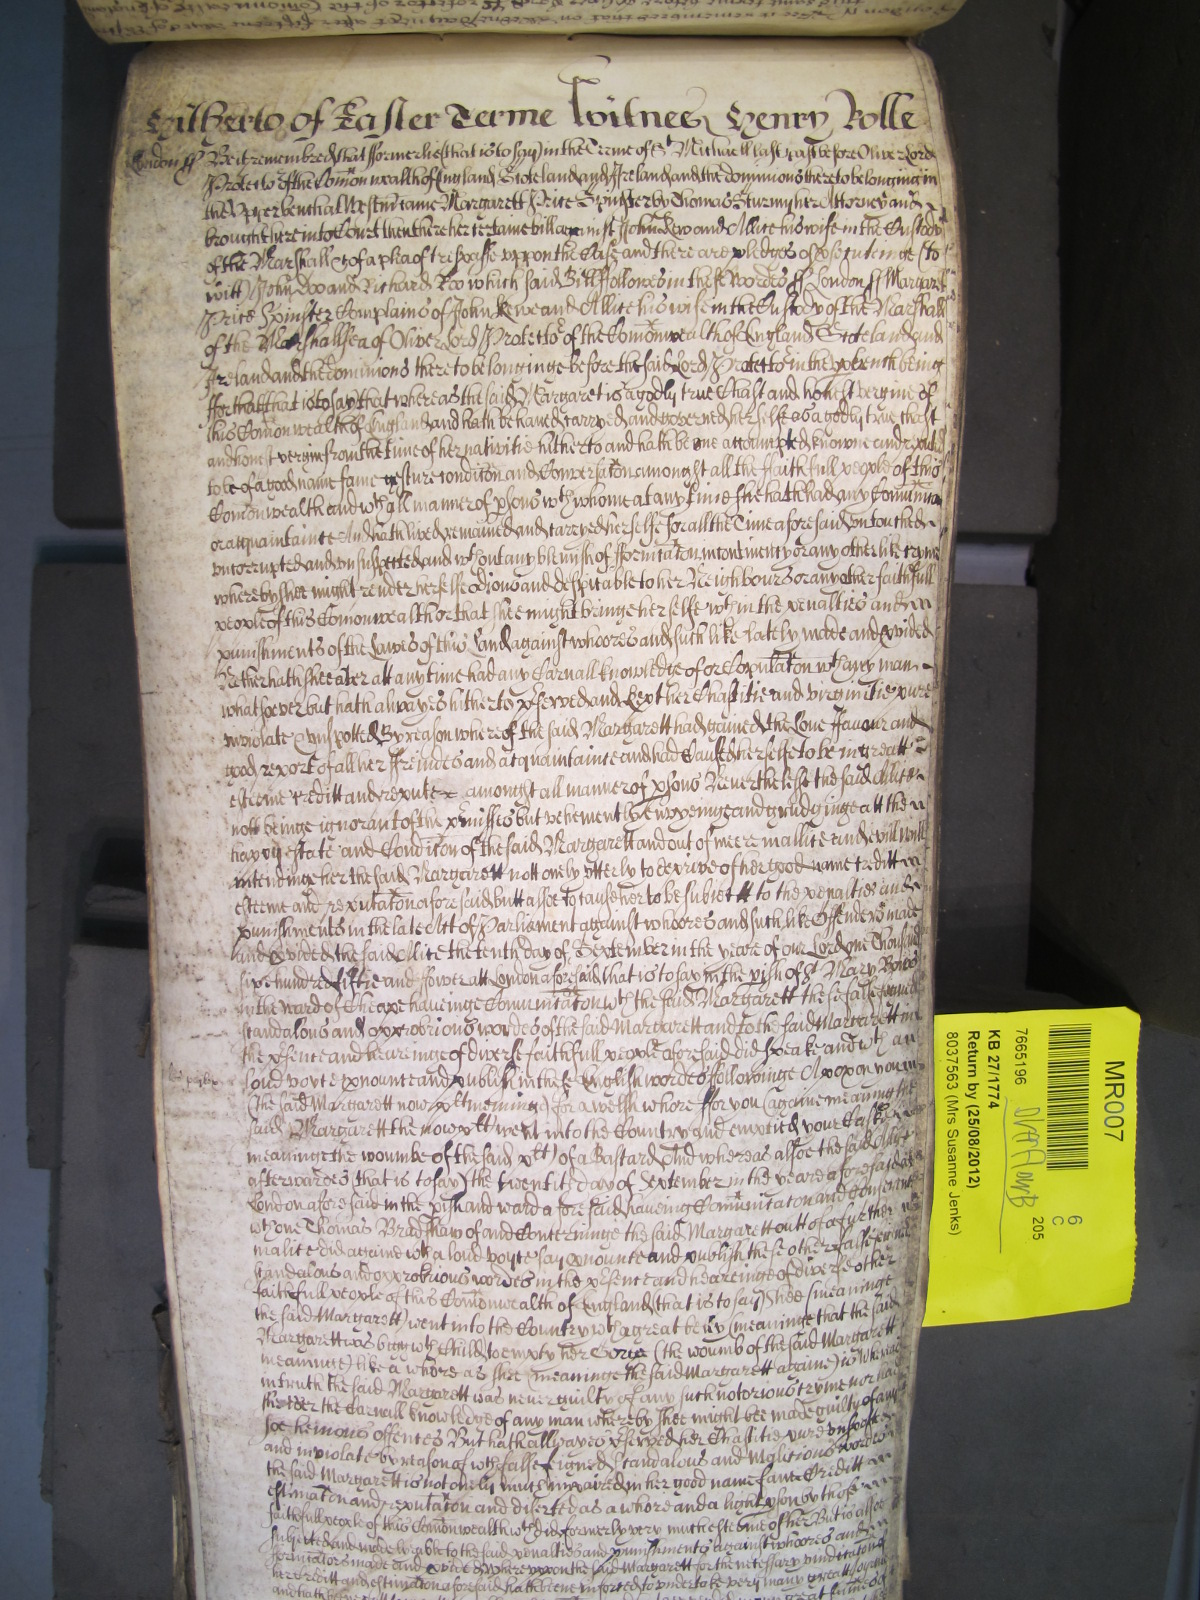 Hitherto of Easter Terme Witnes Henry Rolle
London ss Be it remembred that formerlie (that is to say) in the Terme of St Michaell last past before Oliver Lord
Protector of the Comonwealth of England Scotland and Ireland and the dominions thereto belonging in
the Upper bench att Westm came Margarett Price Spinster by Thomas Sturmy her Attorney and
brought here into Court then there her certaine bill against John Rewe and Allice his wife in the Custody
of the Marshall &c of a plea of trespasse uppon the Case and there are pledges of prosecutinge (to
witt) John Doo and Richard Roo which said Bill followes in these Wordes ss London ss Margarett
Price Spinster Complaines of John Rewe and Allice his wife in the Custody of the Marshall
of the Marshallsea of Oliver Lord Protector of the Comonwealth of England Scotland and
Ireland and the dominions thereto belonginge before the said Lord Protector in the upper bench being
ffor that that is to say that whereas the said Margarett is a godly true Chast and honest vergine of
this Comonwealth of England and hath behaved carryed and governed herselfe as a godly true chast
and honest vergin from the time of her nativitie hitherto and hath bene accompted knowne and reputed
to be of a good name fame gesture condicon and Conversacon amongst all the ffaithfull people of this
Comonwealth and wth all manner of psons wth whome at any time she hath had any Comunicacon
or acquaintance And hath lived remained and caryed herselfe for all the Time aforesaid untouched
uncorrupted and unsuspected and wthout any blemish of ffornicacon incontinency or any other like cryme
whereby shee might render herselfe odious and despicable to her Neighbours or any other faithfull
people of this Comonwealth or that shee might bringe herselfe wthin the penalties and
punishments of the Lawes of this Land against whoores and such like lately made and pvided
Nether hath shee ever att any time had any Carnall knowledge of or Copulacon wth any man
whatsoever but hath alwayes hitherto pserved and kept her Chastitie and virginitie pure
inviolate & unspotted By reason whereof the said Margarett had gained the Love ffavour and
good report of all her ffreindes and acquaintance and had Caused herselfe to be in greatt
esteeme creditt and repute amongst all manner of psons Neverthelesse the said Allice
nott beinge ignorant of the pmisses but vehemently envyenge and grudginge att the
happy estate and Condicon of the said Margarett and out of meere mallice and evill will
intendinge her the said Margarett nott onely utterly to deprive of her good name creditt
esteeme and reputacon aforesaid butt alsoe to cause her to be subiectt to the penalties and
punishments in the late Act of Parliament against whoores and such like Offenders made
and pvided the said Allice the tenth day of September in the yeare of our Lord one Thousand
six hundred fiftie and ffower att London aforesaid that is to say in the pish of St Mary Bowe
in the ward of Cheape haveinge Comunicacon wth the said Margarett these false feigned
scandalous and opprobrious wordes of the said Margarett and to the said Margarett in
the psence and heareinge of diverse faithfull people aforesaid did speake and wth an
loud voyce pnounce and publish in these English wordes followinge A pox on you
(the said Margarett now plt meaning) for a welsh whore ffor you (againe meaning the
said Margarett the now plt) went into the Country and emptied your Caske
meaninge the woumbe of the said plt) of a Bastard And whereas alsoe the said Allice
afterwardes that is to say) the twentith day of September in the yeare aforesaid att
London aforesaid in the pish and ward aforesaid haveing Comunicacon and
wth one Thomas Bradshaw of and Concerninge the said Margarett out of a further
malice did againe wth a loud voyce say pnounce and publish these other false feigned
scandalous and opprobrious wordes in the psence and heareinge of diverse other
faithfull people of this Comonwealth of England (that is to say) Shee (meaninge
the said Margarett) went into the Country wth a great belly (meaninge that the said
Margarett was bigg wth Child) to empty her Gorge (the woumb of the said Margarett
meaninge) like a whore as shee (meaninge the said Margarett againe) is Whereas
in truth the said Margarett was never guilty of any such notorious cryme nor had
shee ever the Carnall knowledge of any man whereby shee might bee made guilty of any
soe heinous offences But hath allwayes pserved her Chastitie pure unspotted
and inviolate by reason of wch false feigned scandalous and Malicious wordes
the said Margarett is not onely much impaired in her good name fame Creditt
estimacon and reputacon and diverted as a whore and a light pson by those
faithfull people of this Comonwealth wch did formerly very much esteeme of her But is alsoe
subiected and made lyable to the said penalties and punishments against whoores and
fornicators made and pvided whereuppon the said Margarett for the necessary vindicacon of
her creditt and estimacon aforesaid hath beene inforced to undertake very many great
MR007
6
C
205
7665196
KB 27/1774
Return by (25/08/2012)
8037563 (Mrs Susanne Jenks)